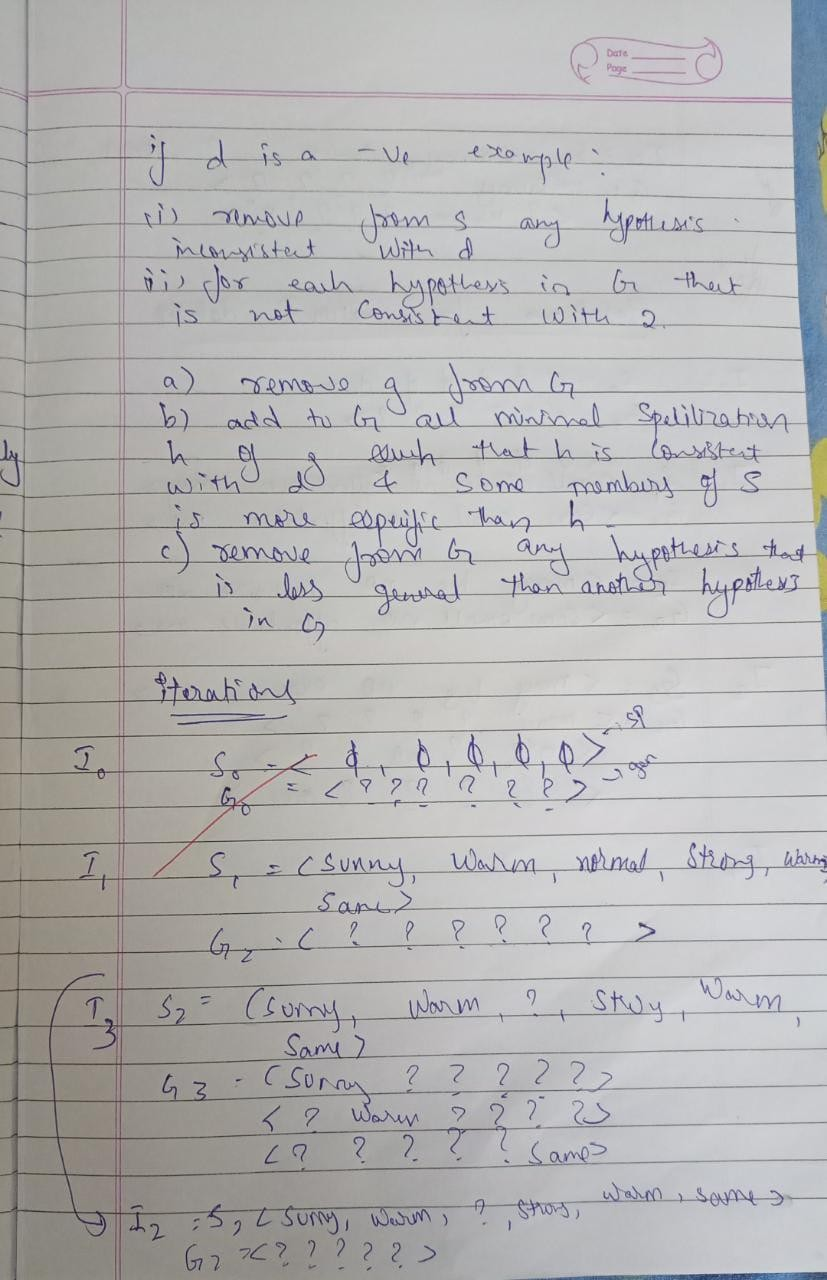 Date
Page
if d is a -ve example :
(i) remove from S any hypothesis
inconsistent with d
ii) for each hypothesis in G that
is not consistent with 2.
a) remove g from G
b) add to G all minimal Spelilization
h of g such that h is consistent
with d & some members of S
is more espcific than h -
c) remove from G any hypothesis that
is less general than another hypothesis
in G
Iterations
I0 S0 = < ϕ, ϕ, ϕ, ϕ, ϕ> → sp
G0 = < ? ? ? ? ? ? > → gen
I1 S1 = (Sunny, Warm, normal, Strong, warm
Same>
G2 = ( ? ? ? ? ? ? >
I3 S2 = (Sunny, Warm, ?, Strog, Warm,
Same>
G3 - (Sunny ? ? ? ? ?>
< ? Warm ? ? ? ?>
< ? ? ? ? ? Same>
I2 = S2 < Sunny, Warm, ?, Strog, Warm, Same >
G2 = <? ? ? ? ? >